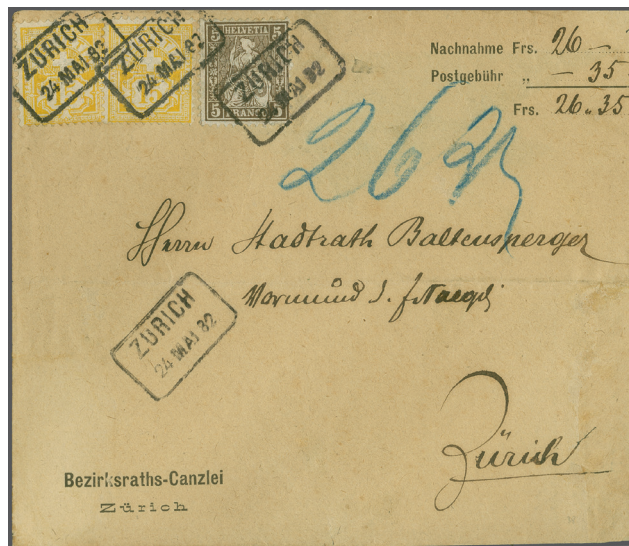 ZÜRICH
24 MAI 82
ZÜRICH
24 MAI 82
5 HELVETIA 5
5 FRANCO 5
ZÜRICH
24 MAI 82
Nachnahme Frs. 26 –
Postgebühr „ – 35
Frs. 26.35
26
Herrn Stadtrath Baltensperger
Vormund
ZÜRICH
24 MAI 82
Zürich
Bezirksraths-Canzlei
Zürich